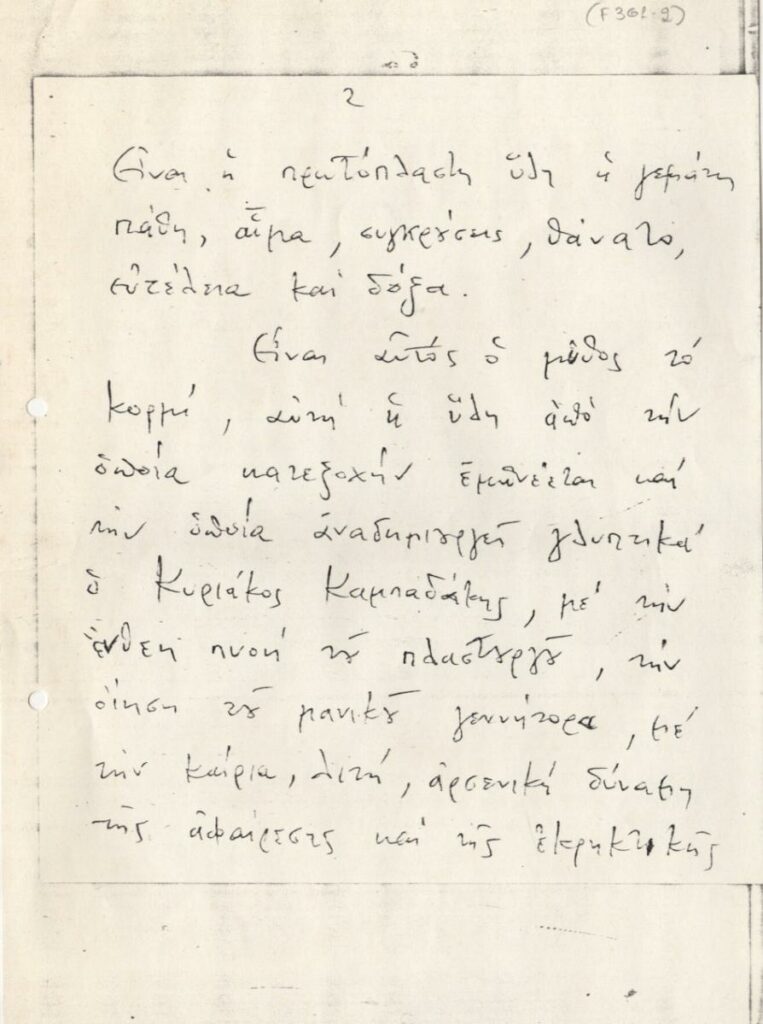 (F361-2)
2
Εἶναι ἡ πρωτόπλαστη ὕλη ἡ γεμάτη
πάθη, αἷμα, συγκρύσεις, θάνατο,
εὐτέλεια καί δόξα.
Εἶναι αὐτός ὁ μύθος τό
κορμί, αὐτή ἡ ὕλη ἀπό τήν
ὁποία κατεξοχήν ἐμπνέεται καί
τήν ὁποία ἀναδημιουργεῖ γλυπτικά
ὁ Κυριάκος Καμπαδάκης, μέ τήν
ἔνθεη πνοή τοῦ πλαστουργοῦ, τήν
οἴηση τοῦ μανικοῦ γεννήτορα, μέ
τήν καίρια, λιτή, ἀρσενική δύναμη
τῆς ἀφαίρεσης καί τῆς ἐκρηκτικῆς